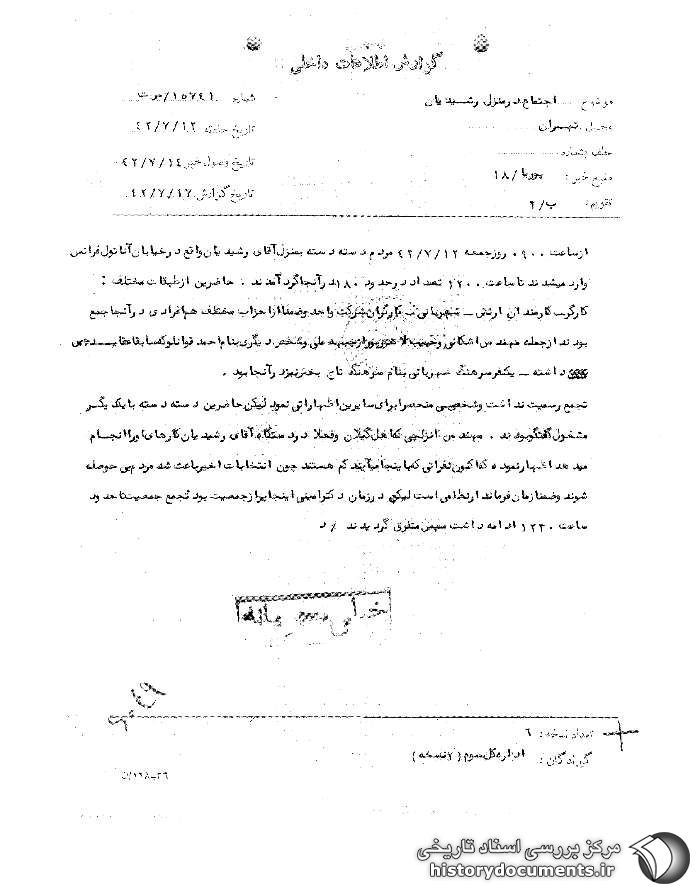 گزارش اطلاعات داخلی
موضوع : اجتماع در منزل رشیدیان
شماره ۱۵۷۴۱/س ت
محل تهران
تاریخ حادثه ۴۲/۷/۱۲
عطف بشماره
تاریخ وصول خبر ۴۲/۷/۱۴
منبع خبر : پوریا/۱۸
تاریخ گزارش ۴۲/۷/۱۷
تقویم : ب/۲
از ساعت ۰۹۰۰ روز جمعه ۴۲/۷/۱۲ مردم دسته دسته بمنزل آقای رشیدیان واقع در خیابان آناتول فرانس
وارد میشدند تا ساعت ۱۲۰۰ تعدادی در حدود ۱۸۰ در آنجا گرد آمدند . حاضرین از طبقات مختلف :
کارگر کارمندان ارتش - شهربانی - کارگران شرکت واحد وضمنا از احزاب مختلف هم افرادی در آنجا جمع
بودند از جمله مهندس اشکانی و حبیب از جبهه ملی وشخص دیگری بنام احمد قوانلو که سابقا
داشته - یکنفر سرهنگ شهربانی بنام سرهنگ تاج بخش نیز در آنجا بود .
تجمع رسمیت نداشت وشخصی منحصرا برای سایرین اظهاراتی ننمود لیکن حاضرین دسته دسته با یکدیگر
مشغول گفتگو بودند . مهندس انزلچی که اهل گیلان وفعلا در دستگاه آقای رشیدیان کارهای او را انجام
میدهد اظهار نموده که اکنون نفراتی که باینجا میآیند کم هستند چون انتخابات اخیر باعث شد مردم بی حوصله
شوند وضمنا زمان فرماندار نظامی است لیکن در زمان دکتر امینی اینجا پر از جمعیت بود تجمع جمعیت تا حدود
ساعت ۱۲۳۰ ادامه داشت سپس متفرق گردیدند / د
خیلی محرمانه
تعداد نسخه : ۶
گیرندگان : اداره کل سوم (۲ نسخه )
مرکز بررسی اسناد تاریخی
historydocuments.ir